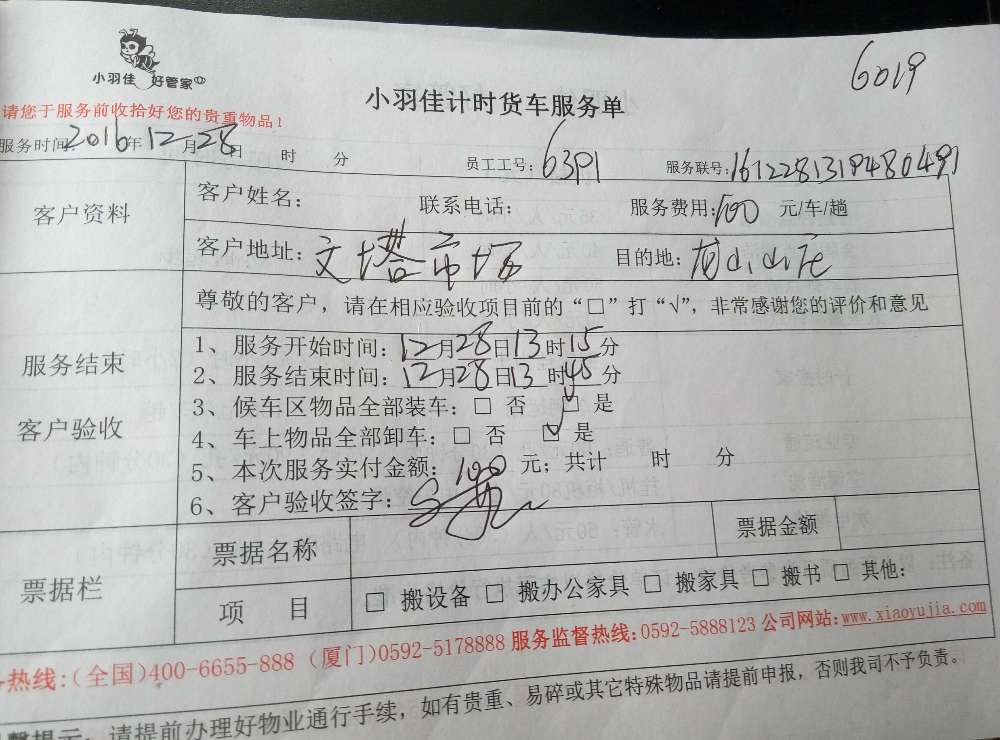 小羽佳 好管家
6019
小羽佳计时货车服务单
请您于服务前收拾好您的贵重物品！
服务时间：2016年12月28日 时 分 员工工号：6391 服务联号：
客户资料
客户姓名： 联系电话： 服务费用：100 元/车/趟
客户地址：文塔 目的地：
服务结束
客户验收
尊敬的客户，请在相应验收项目前的“□”打“√”，非常感谢您的评价和意见
1、服务开始时间：12月28日13时15分
2、服务结束时间：12月28日13时45分
3、候车区物品全部装车：□ 否 ☑ 是
4、车上物品全部卸车：□ 否 ☑ 是
5、本次服务实付金额：100元；共计 时 分
6、客户验收签字：
票据栏
票据名称 票据金额
项 目 □ 搬设备 □ 搬办公家具 □ 搬家具 □ 搬书 □ 其他：
热线：(全国)400-6655-888 (厦门)0592-5178888 服务监督热线：0592-5888123 公司网站：www.xiaoyujia.com
提示：请提前办理好物业通行手续，如有贵重、易碎或其它特殊物品请提前申报，否则我司不予负责。